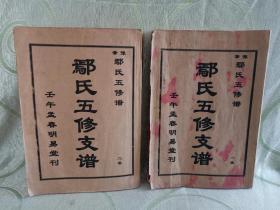 鄢氏五修谱
鄢氏五修支谱
壬午孟春明易堂刊
鄢氏五修谱
鄢氏五修支谱
壬午孟春明易堂刊